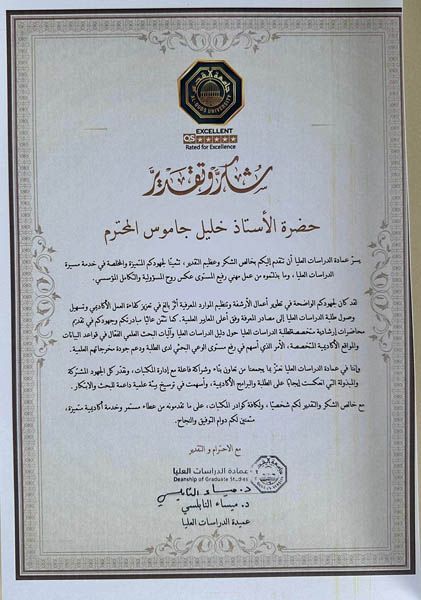 جامعة القدس
AL-QUDS UNIVERSITY
EXCELLENT
QS ★★★★★
Rated for Excellence
شكر وتقدير
حضرة الأستاذ خليل جاموس المحترم
يسرّ عمادة الدراسات العليا أن تتقدم إليكم بخالص الشكر وعظيم التقدير، تثمينًا لجهودكم المتميزة والمخلصة في خدمة مسيرة
الدراسات العليا، وما بذلتموه من عمل مهني رفيع المستوى عكس روح المسؤولية والتكامل المؤسسي.
لقد كان لجهودكم الواضحة في تطوير أعمال الأرشفة وتنظيم الموارد المعرفية أثرٌ بالغ في تعزيز كفاءة العمل الأكاديمي وتسهيل
وصول طلبة الدراسات العليا إلى مصادر المعرفة وفق أعلى المعايير العلمية. كما نثمّن عاليًا مبادرتكم وجهودكم في تقديم
محاضرات إرشادية متخصصة لطلبة الدراسات العليا حول دليل الدراسات العليا وآليات البحث العلمي الفعّال في قواعد البيانات
والمواقع الأكاديمية المتخصصة، الأمر الذي أسهم في رفع مستوى الوعي البحثي لدى الطلبة ودعم جودة مخرجاتهم العلمية.
وإننا في عمادة الدراسات العليا نعتزّ بما يجمعنا من تعاون بنّاء وشراكة فاعلة مع إدارة المكتبات، ونقدّر كل الجهود المشتركة
والمبذولة التي انعكست إيجابًا على الطلبة والبرامج الأكاديمية، وأسهمت في ترسيخ بيئة علمية داعمة للبحث والابتكار.
مع خالص الشكر والتقدير لكم شخصيًا، ولكافة كوادر المكتبات، على ما تقدمونه من عطاء مستمر وخدمة أكاديمية متميزة،
متمنين لكم دوام التوفيق والنجاح.
مع الاحترام و التقدير
عمادة الدراسات العليا
Deanship of Graduate Studies
د. ميساء النابلسي
د. ميساء النابلسي
عميدة الدراسات العليا